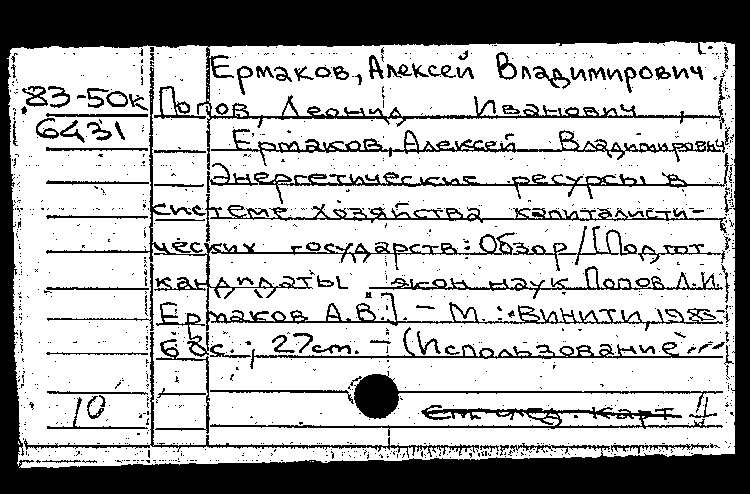 Ермаков, Алексей Владимирович.
83-50к Попов, Леонид Иванович,
6431 Ермаков, Алексей Владимирович
Энергетические ресурсы в
системе хозяйства капиталисти-
ческих государств: Обзор / [Подгот.
кандидаты экон. наук Попов Л.И.
Ермаков А.В.]. - М.: ВИНИТИ, 1983-
68с.; 27см. - (Использование
10 См. след. карт